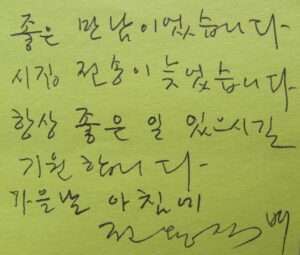 좋은 만남이었습니다
시정 전송이 늦었습니다
항상 좋은 일 있으시길
기원합니다
가을날 아침에